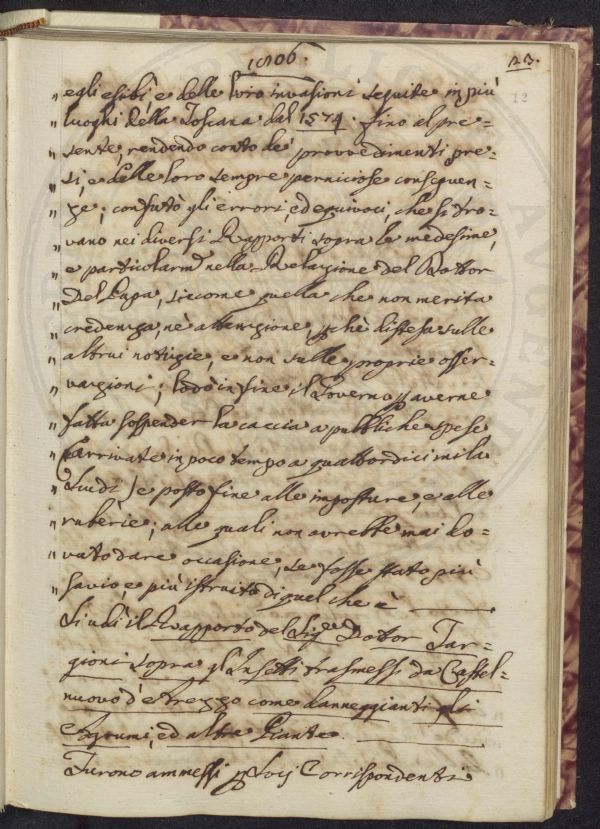 1806.
23.
12
" egli esibì, e delle loro invasioni seguite in più
" luoghi della Toscana dal 1574. fino al pre=
" sente, rendendo conto de' provvedimenti pre=
" si, e delle loro sempre perniciose conseguen=
" ze; confutò gli errori, ed equivoci, che si tro=
" vano nei diversi Rapporti sopra le medesime,
" e particolarm.e nella Relazione del Dottor
" Del Papa, siccome quella che non merita
" credenza, nè attenzione, p chè distesa sulle
" altrui notizie, e non sulle proprie osser=
" vazioni; lodò in fine il Governo p averne
" fatta sospender la caccia a pubbliche spese
" (arrivate in poco tempo a quattordici mila
" Scudi) e posto fine alle imposture, e alle
" ruberie; alle quali non avrebbe mai do=
" vuto dare occasione, se fosse stato più
" savio, e più istruito di quel che è
Si udì il Rapporto del Sig.re Dottor Tar=
gioni sopra gl'Insetti trasmessi da Castel=
nuovo d'è trezzo come danneggianti gli
Agrumi, ed altre Piante.
Furono ammessi p Socij Corrispondenti